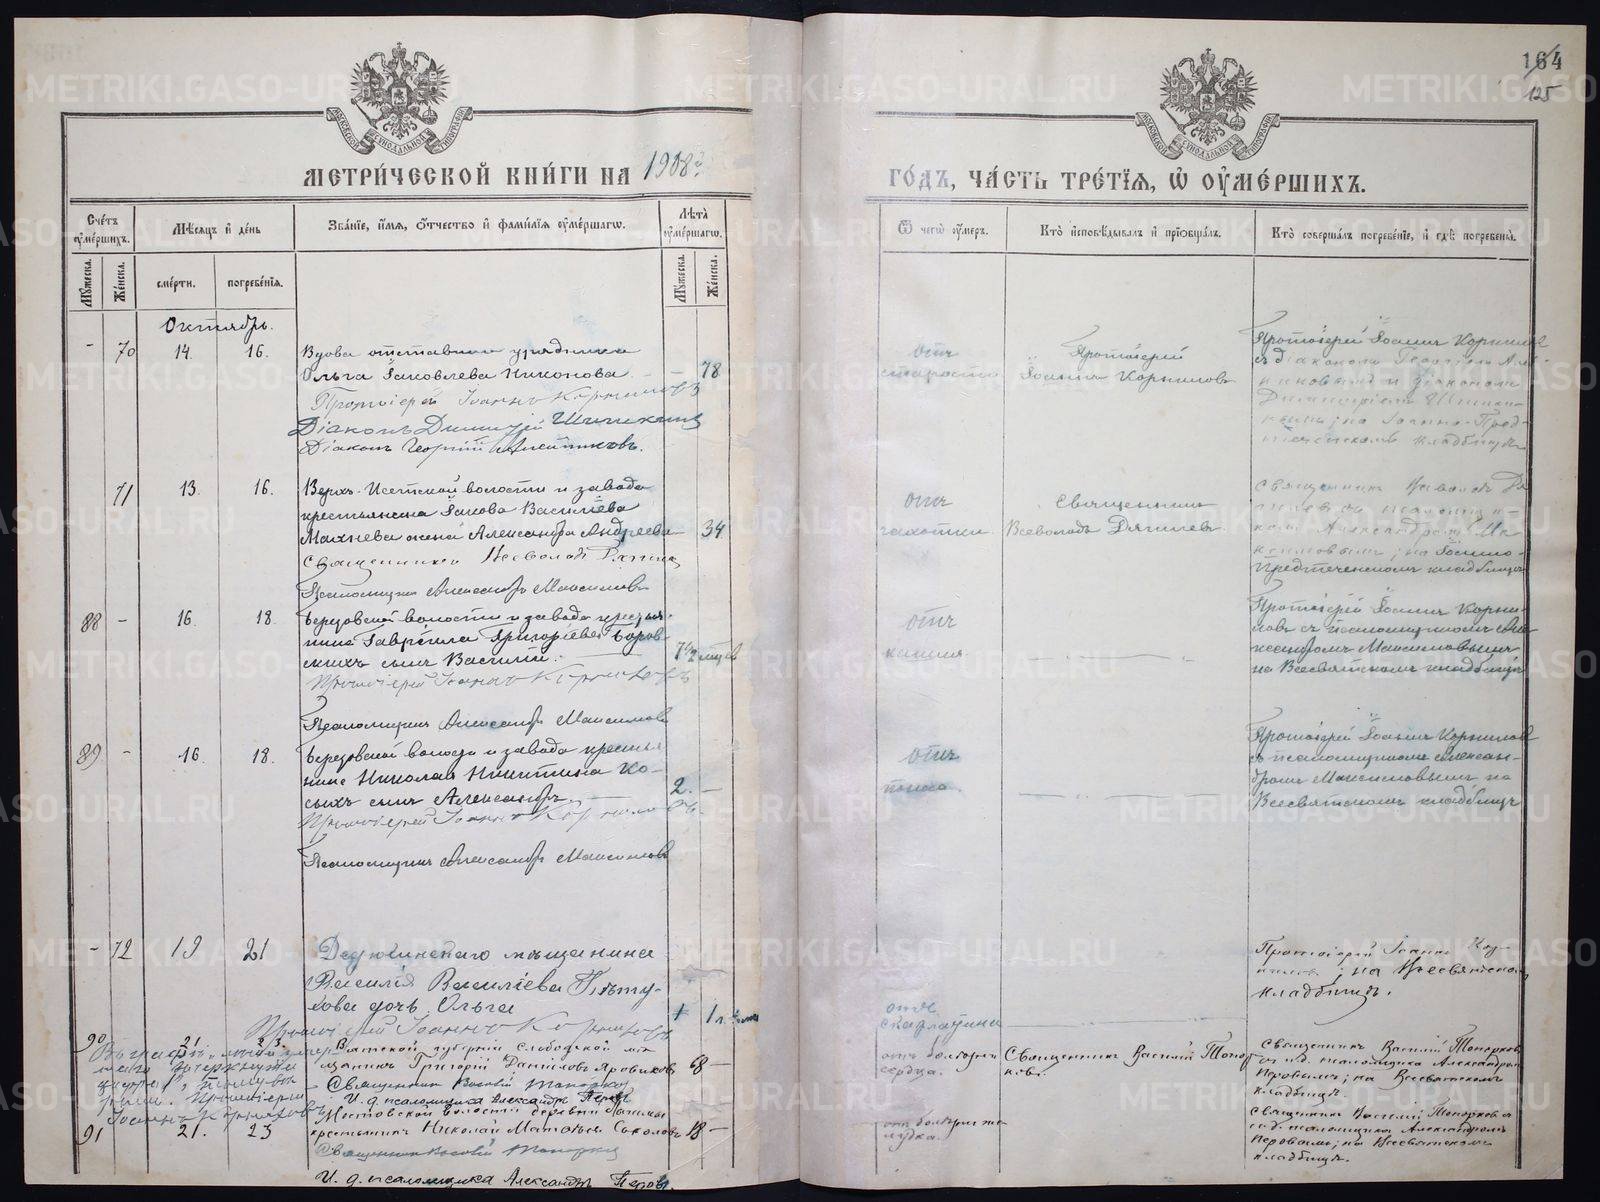 164
125
МЕТРИ́ЧЕСКОЙ КНИ́ГИ НА 1908 г.
ГО́ДЪ, ЧА́СТЬ ТРЕ́ТІѦ, Ѡ ОУМЕ́РШИХЪ.
Сче́тъ оумершихъ.
Мѣсѧцъ и день
Зва́ніе, и́мѧ, ѻ́тчество и фами́ліѧ оумершагѡ.
Лѣта оумершагѡ.
Ѿ чегѡ оумеръ.
Кто исповѣдывалъ и пріобщалъ.
Кто совершалъ погребеніе, и гдѣ погребены.
Мужеска.
Женска.
смерти.
погребеніѧ.
Мужеска.
Женска.
Октябрь.
- 70 14. 16.
Вдова отставнаго урядника
Ольга Яковлева Никонова. - 78
Протоіерей Іоаннъ Корниловъ
Діаконъ Димитрій Шишкинъ
Діаконъ Георгій
отъ
старости
Протоіерей
Іоаннъ Корниловъ
Протоіерей Іоаннъ Корниловъ
съ діакономъ Георгіемъ
и діакономъ
Димитріемъ
на Іоанно-Пред-
теченскомъ кладбищѣ
71 13. 16.
Верхъ-Исетской волости и завода
крестьянина Якова Васильева
Махнева жена Александра Андреева 34
Священникъ Всеволодъ
Псаломщикъ Александръ Максимовъ
отъ
чахотки
Священникъ
Всеволодъ
Священникъ Всеволодъ
псаломщи-
комъ Александромъ Ма-
ксимовымъ; на Іоанно-
Предтеченскомъ кладбищѣ
88 - 16. 18.
Березовской волости и завода крестья-
нина Гавріила Григоріева Боров-
скихъ сынъ Василій. 7½ мцев
Протоіерей Іоаннъ Корниловъ
Псаломщикъ Александръ Максимовъ
отъ
кашля.
Протоіерей Іоаннъ Корни-
ловъ съ псаломщикомъ Але-
ксандромъ Максимовымъ
на Всесвятскомъ кладбищѣ
89 - 16. 18.
Березовской волости и завода крестья-
нина Николая Никитина Ко-
сыхъ сынъ Александръ. 2. -
Протоіерей Іоаннъ Корниловъ.
Псаломщикъ Александръ Максимовъ
отъ
поноса.
Протоіерей Іоаннъ Корниловъ
съ псаломщикомъ Алексан-
дромъ Максимовымъ на
Всесвятскомъ кладбищѣ
- 72 19 21
Дедюхинскаго мѣщанина
Василія Васильева Пѣту-
хова дочь Ольга 1 г.
Протоіерей Іоаннъ Корниловъ
отъ
скарлатины
Протоіерей Іоаннъ Кор-
ниловъ; на Всесвятскомъ
кладбищѣ.
90 21. 23.
Вятской губерніи Слободской мѣ-
щанинъ Григорій Даниловъ Яровиковъ 68 -
Священникъ Василій Топорковъ
И. д. псаломщика Александръ Перовъ
отъ болѣзни
сердца.
Священникъ Василій Топор-
ковъ.
Священникъ Василій Топорковъ
съ и.д. псаломщика Александромъ
Перовымъ; на Всесвятскомъ
кладбищѣ.
Въ графѣ
зачеркнута
цифра "1",
Протоіерей
Іоаннъ Корниловъ
91 21. 23
волости деревни
крестьянинъ Николай Матвѣевъ Соколовъ 18 -
Священникъ Василій Топорковъ
И. д. псаломщика Александръ Перовъ.
отъ болѣзни же-
лудка.
Священникъ Василій Топорковъ
съ и.д. псаломщика Александромъ
Перовымъ; на Всесвятскомъ
кладбищѣ.
METRIKI.GASO-URAL.RU